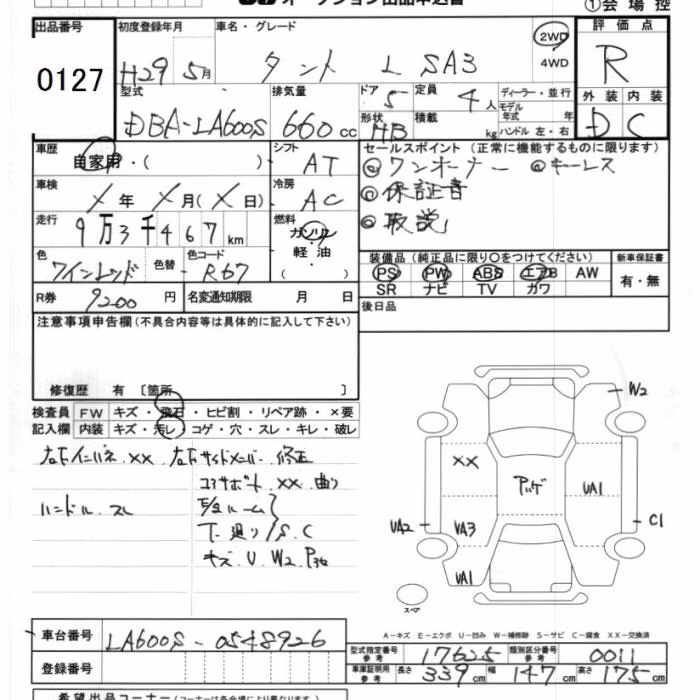 オークション出品申込書
①会場控
出品番号 0127
初度登録年月 H29 5月
車名・グレード タント L SA3
2WD 4WD
評価点 R
外装 内装 D C
型式 DBA-LA600S
排気量 660 cc
ドア 5
定員 4人
形状 HB
積載 kg
ディーラー・並行
モデル年式 年
ハンドル 左・右
車歴 自家用・( )
シフト AT
セールスポイント(正常に機能するものに限ります)
◎ワンオーナー ◎キーレス
◎保証書
◎取説
車検 X年 X月(X日)
冷房 AC
走行 9万3千467km
燃料 ガソリン 軽油 ( )
色 ワインレッド
色替
色コード R67
装備品(純正品に限り○をつけてください)
PS PW ABS エアB AW
SR ナビ TV カワ
新車保証書 有・無
R券 9200円
名変通知期限 月 日
後日品
注意事項申告欄(不具合内容等は具体的に記入して下さい)
修復歴 有 〔箇所 〕
検査員記入欄
FW キズ・飛石・ヒビ割・リペア跡・×要
内装 キズ・汚レ・コゲ・穴・スレ・キレ・破レ
右Fインパネ.XX. 右Fサイドメンバー.修正
コアサポート.XX.曲り
ハンドル.スレ
下廻り/S.C
キズ.U.W2.
W2
XX
UA1
UA2
UA3
C1
UA1
スペア
A-キズ E-エクボ U-凹み W-補修跡 S-サビ C-腐食 XX-交換済
車台番号 LA600S-0548926
登録番号
型式指定番号 参考 17625
類別区分番号 参考 0011
車庫証明用 参考 長さ 339cm 幅 147cm 高さ 175cm
希望出品コーナー(コーナーは各会場により異なります)